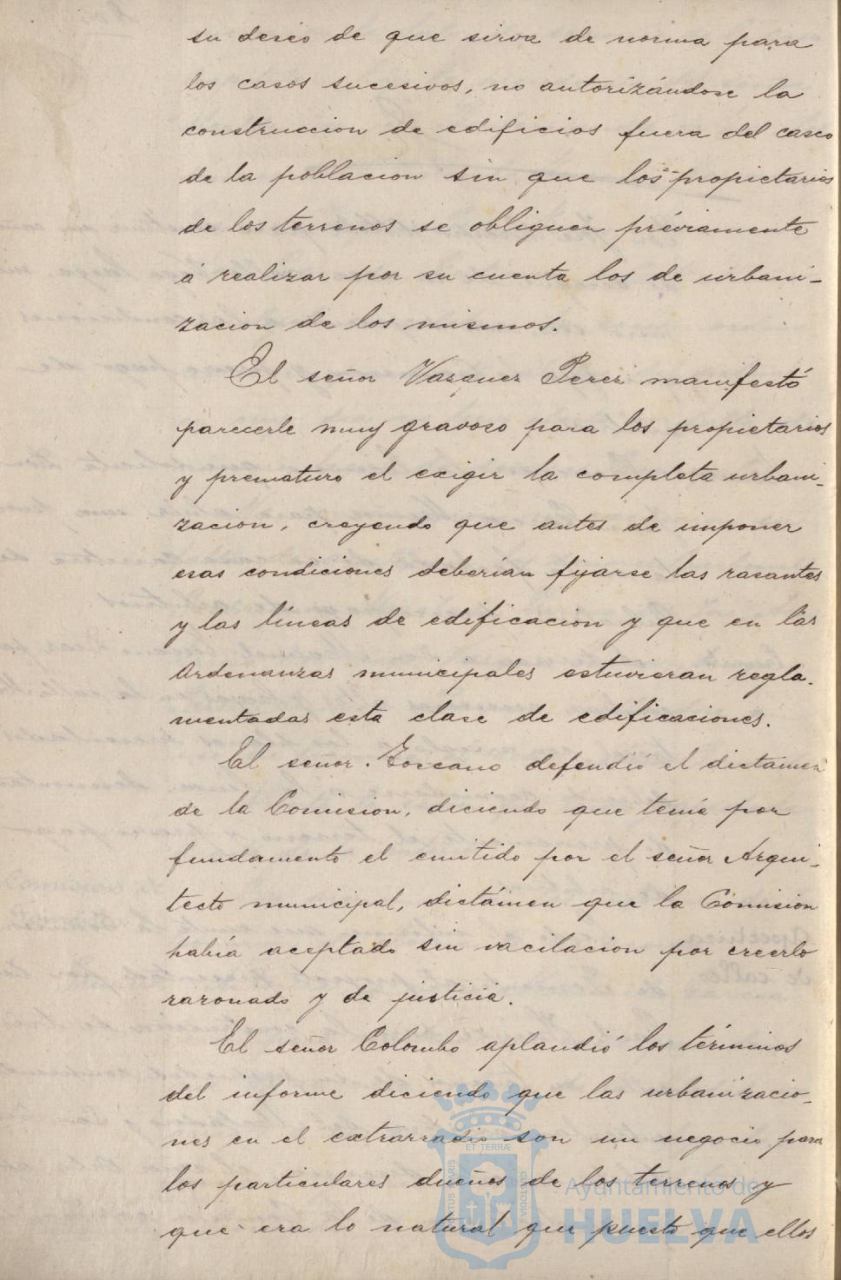 su deseo de que sirva de norma para
los casos sucesivos, no autorizándose la
construccion de edificios fuera del casco
de la poblacion sin que los propietarios
de los terrenos se obliguen préviamente
á realizar por su cuenta los de urbani-
zacion de los mismos.
El señor Vazquez Perez manifestó
parecerle muy gravoso para los propietarios
y prematuro el exigir la completa urbani-
zacion, creyendo que antes de imponer
esas condiciones deberían fijarse las rasantes
y las líneas de edificacion y que en las
Ordenanzas municipales estuvieran regla-
mentadas esta clase de edificaciones.
El señor Toscano defendió el dictámen
de la Comision, diciendo que tenía por
fundamento el emitido por el señor Arqui-
tecto municipal, dictámen que la Comision
había aceptado sin vacilacion por creerlo
razonado y de justicia.
El señor Colombo aplaudió los términos
del informe diciendo que las urbanizacio-
nes en el extrarradio son un negocio para
los particulares dueños de los terrenos y
que era lo natural que puesto que ellos
Ayuntamiento de
HUELVA